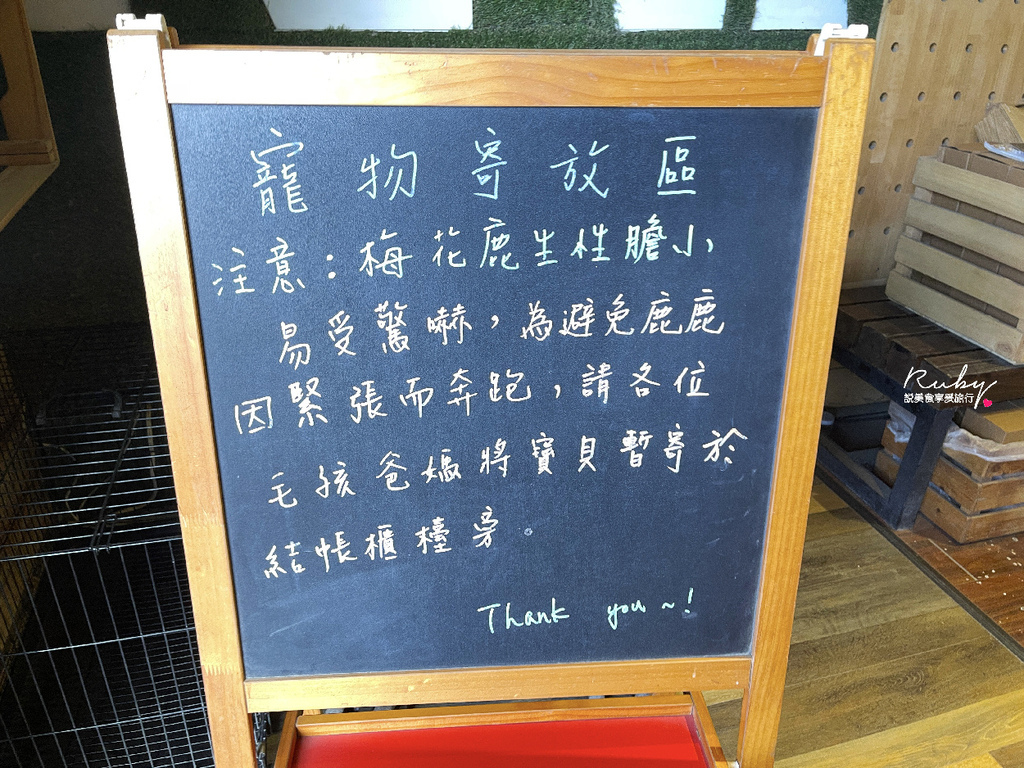 寵物寄放區
注意：梅花鹿生性膽小
易受驚嚇，為避免鹿鹿
因緊張而奔跑，請各位
毛孩爸媽將寶貝暫寄於
結帳櫃檯旁。
Thank you~!
Ruby
說美食享愛旅行